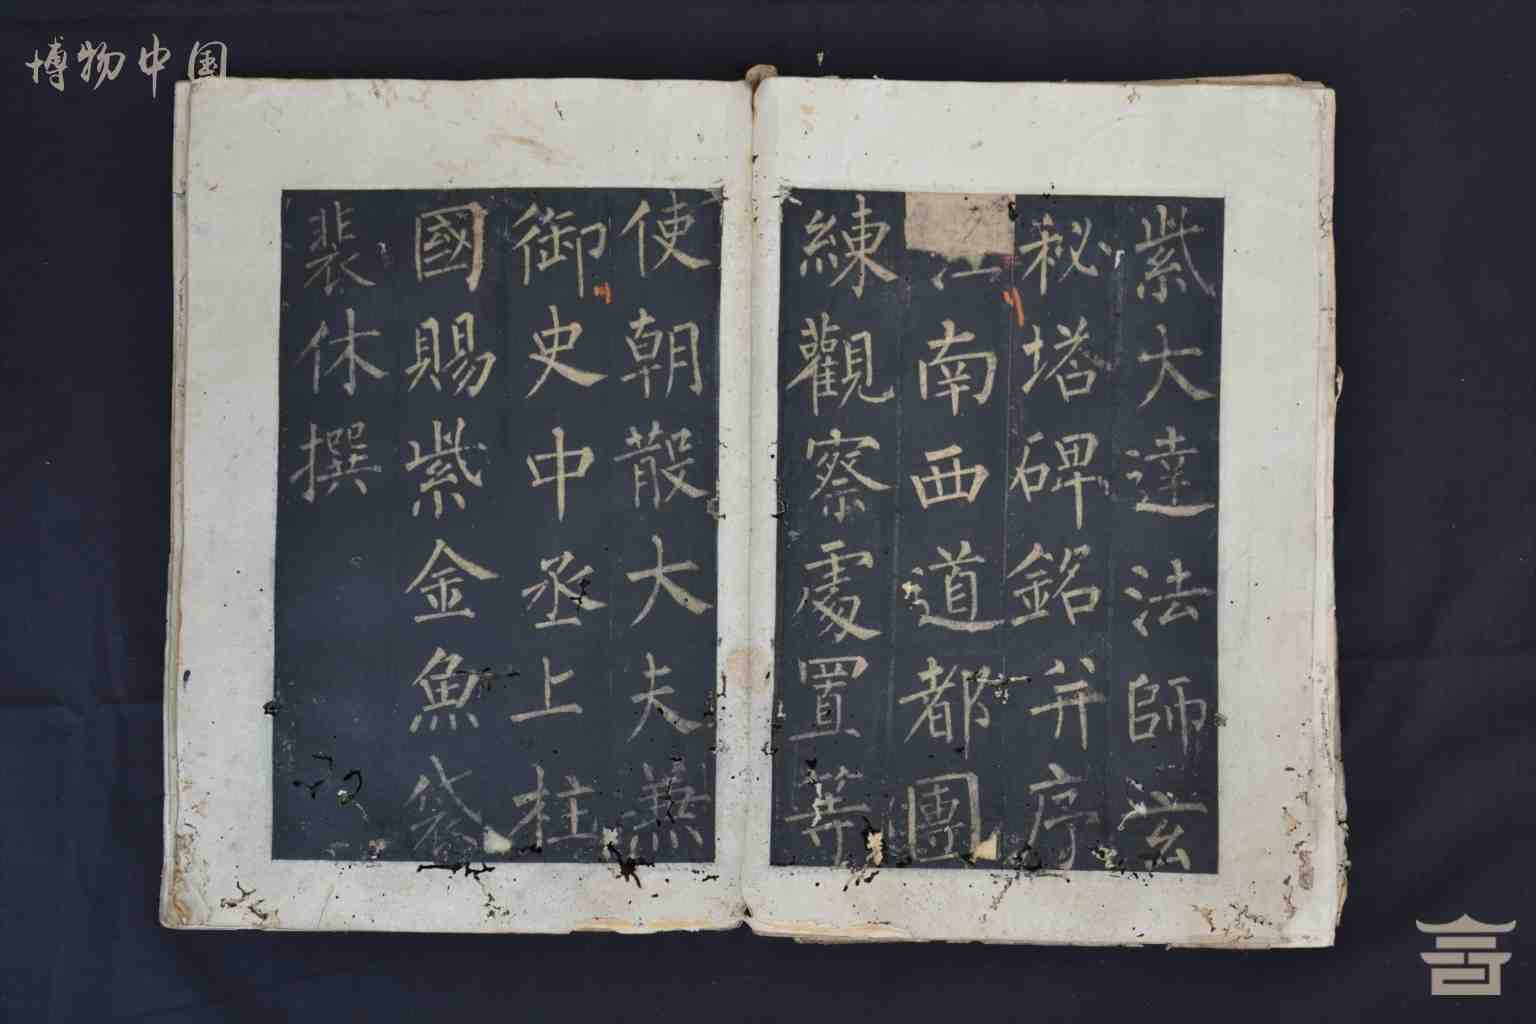 博物中国
紫大達法師玄
秘塔碑銘并序
江南西道都團
練觀察處置等
使朝散大夫兼
御史中丞上柱
國賜紫金魚袋
裴休撰